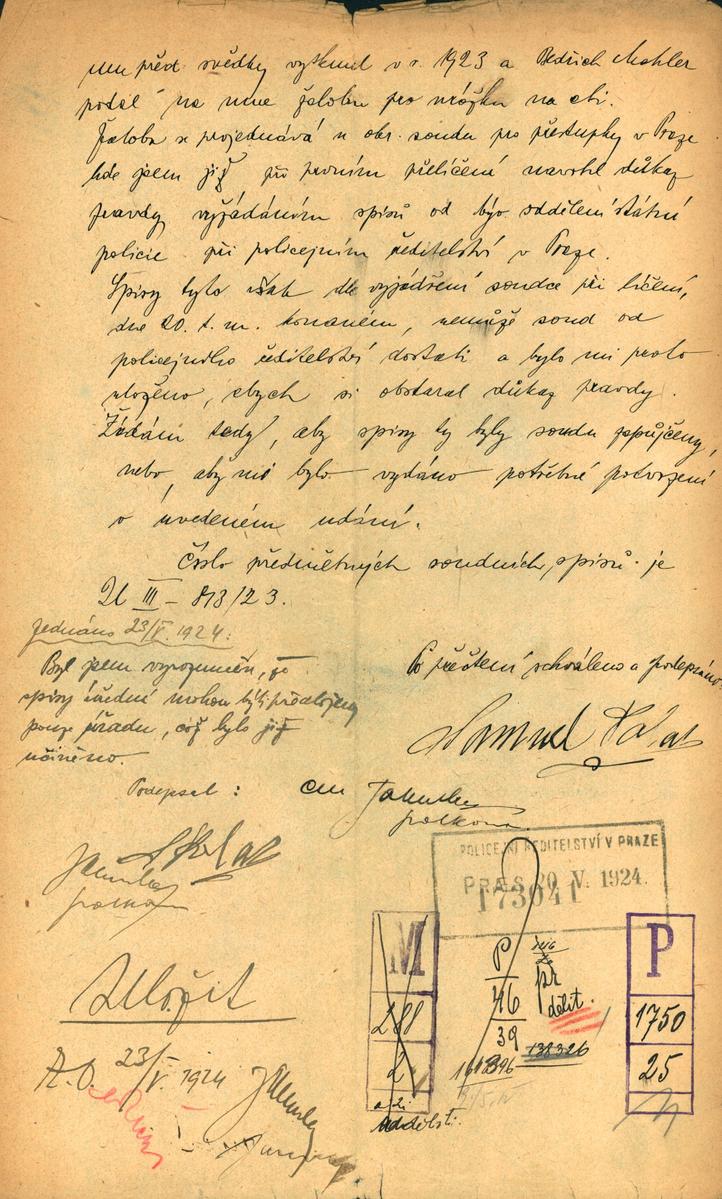 mu před svědky vytknul v r. 1923 a Bedřich Mahler
podal na mne žalobu pro urážku na cti.
Žaloba se projednává u okr. soudu pro přestupky v Praze
kde jsem již při prvním přelíčení navrhl důkaz
pravdy vyžádáním spisů od býv. oddělení státní
policie při policejním ředitelství v Praze.
Spisy tyto však dle vyjádření soudce při líčení,
dne 20. t. m. konaném, nemůže soud od
policejního ředitelství dostati a bylo mi proto
uloženo, abych si obstaral důkaz pravdy.
Žádám tedy, aby spisy ty byly soudu zapůjčeny,
nebo, aby mi bylo vydáno potřebné potvrzení
o uvedeném udání.
Číslo předmětných soudních spisů je
U III – 813/23.
Jednáno 23/V. 1924:
Byl jsem vyrozuměn, že
spisy úřední mohou býti předloženy
pouze úřadu, což bylo již
učiněno.
Po přečtení schváleno a podepsáno
Samuel Salat
Podepsal :
Salat
POLICEJNÍ ŘEDITELSTVÍ V PRAZE
PRÆS 20 V. 1924.
173041
M
288
2
P
46
39
dělit.
138326
P
1750
25
Uložit
23/V. 1924